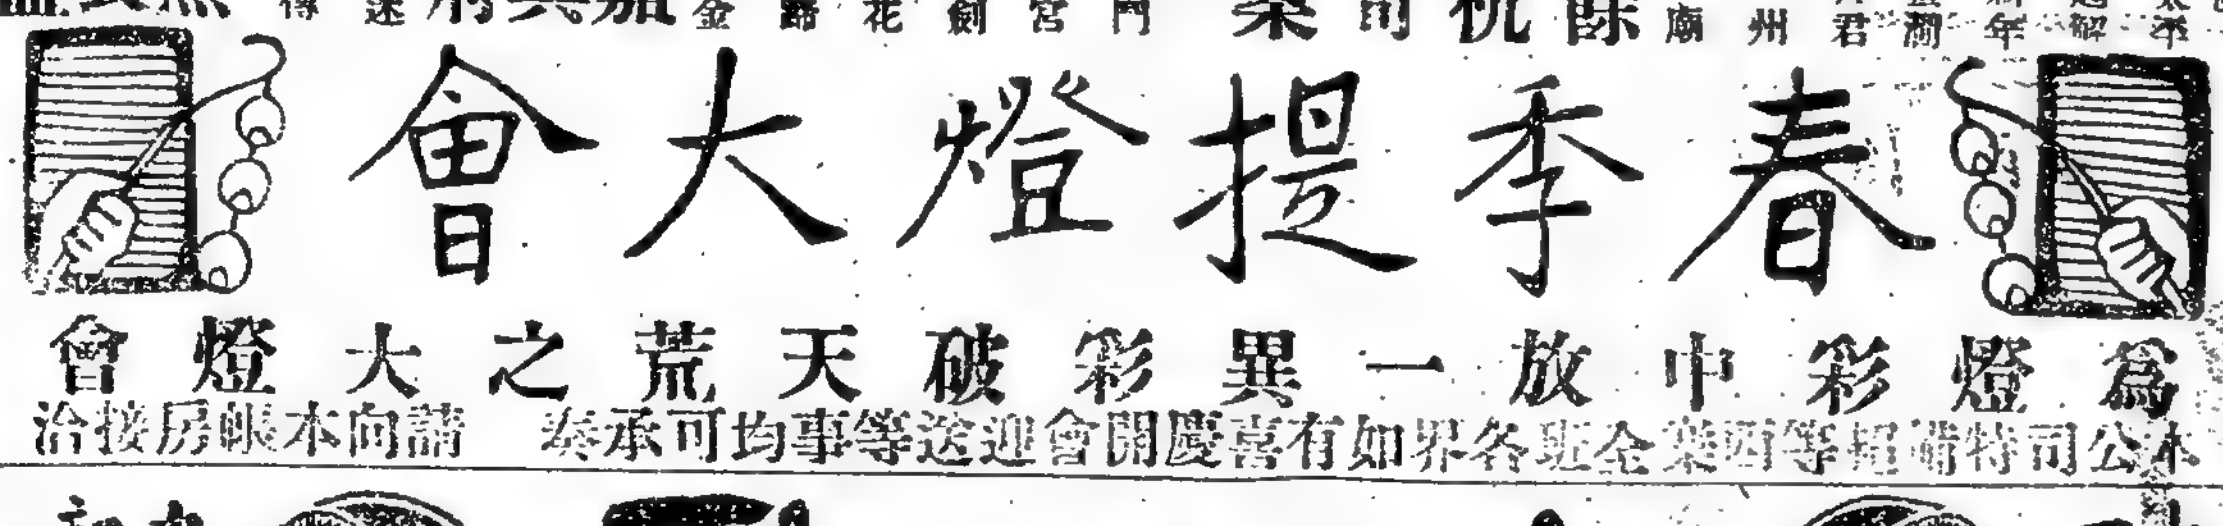 春季提燈大會
為燈彩中放一異彩破天荒之大燈會
本公司特請超等西樂全班各界如有喜慶開會迎送等事均可承奏 請向本帳房接洽